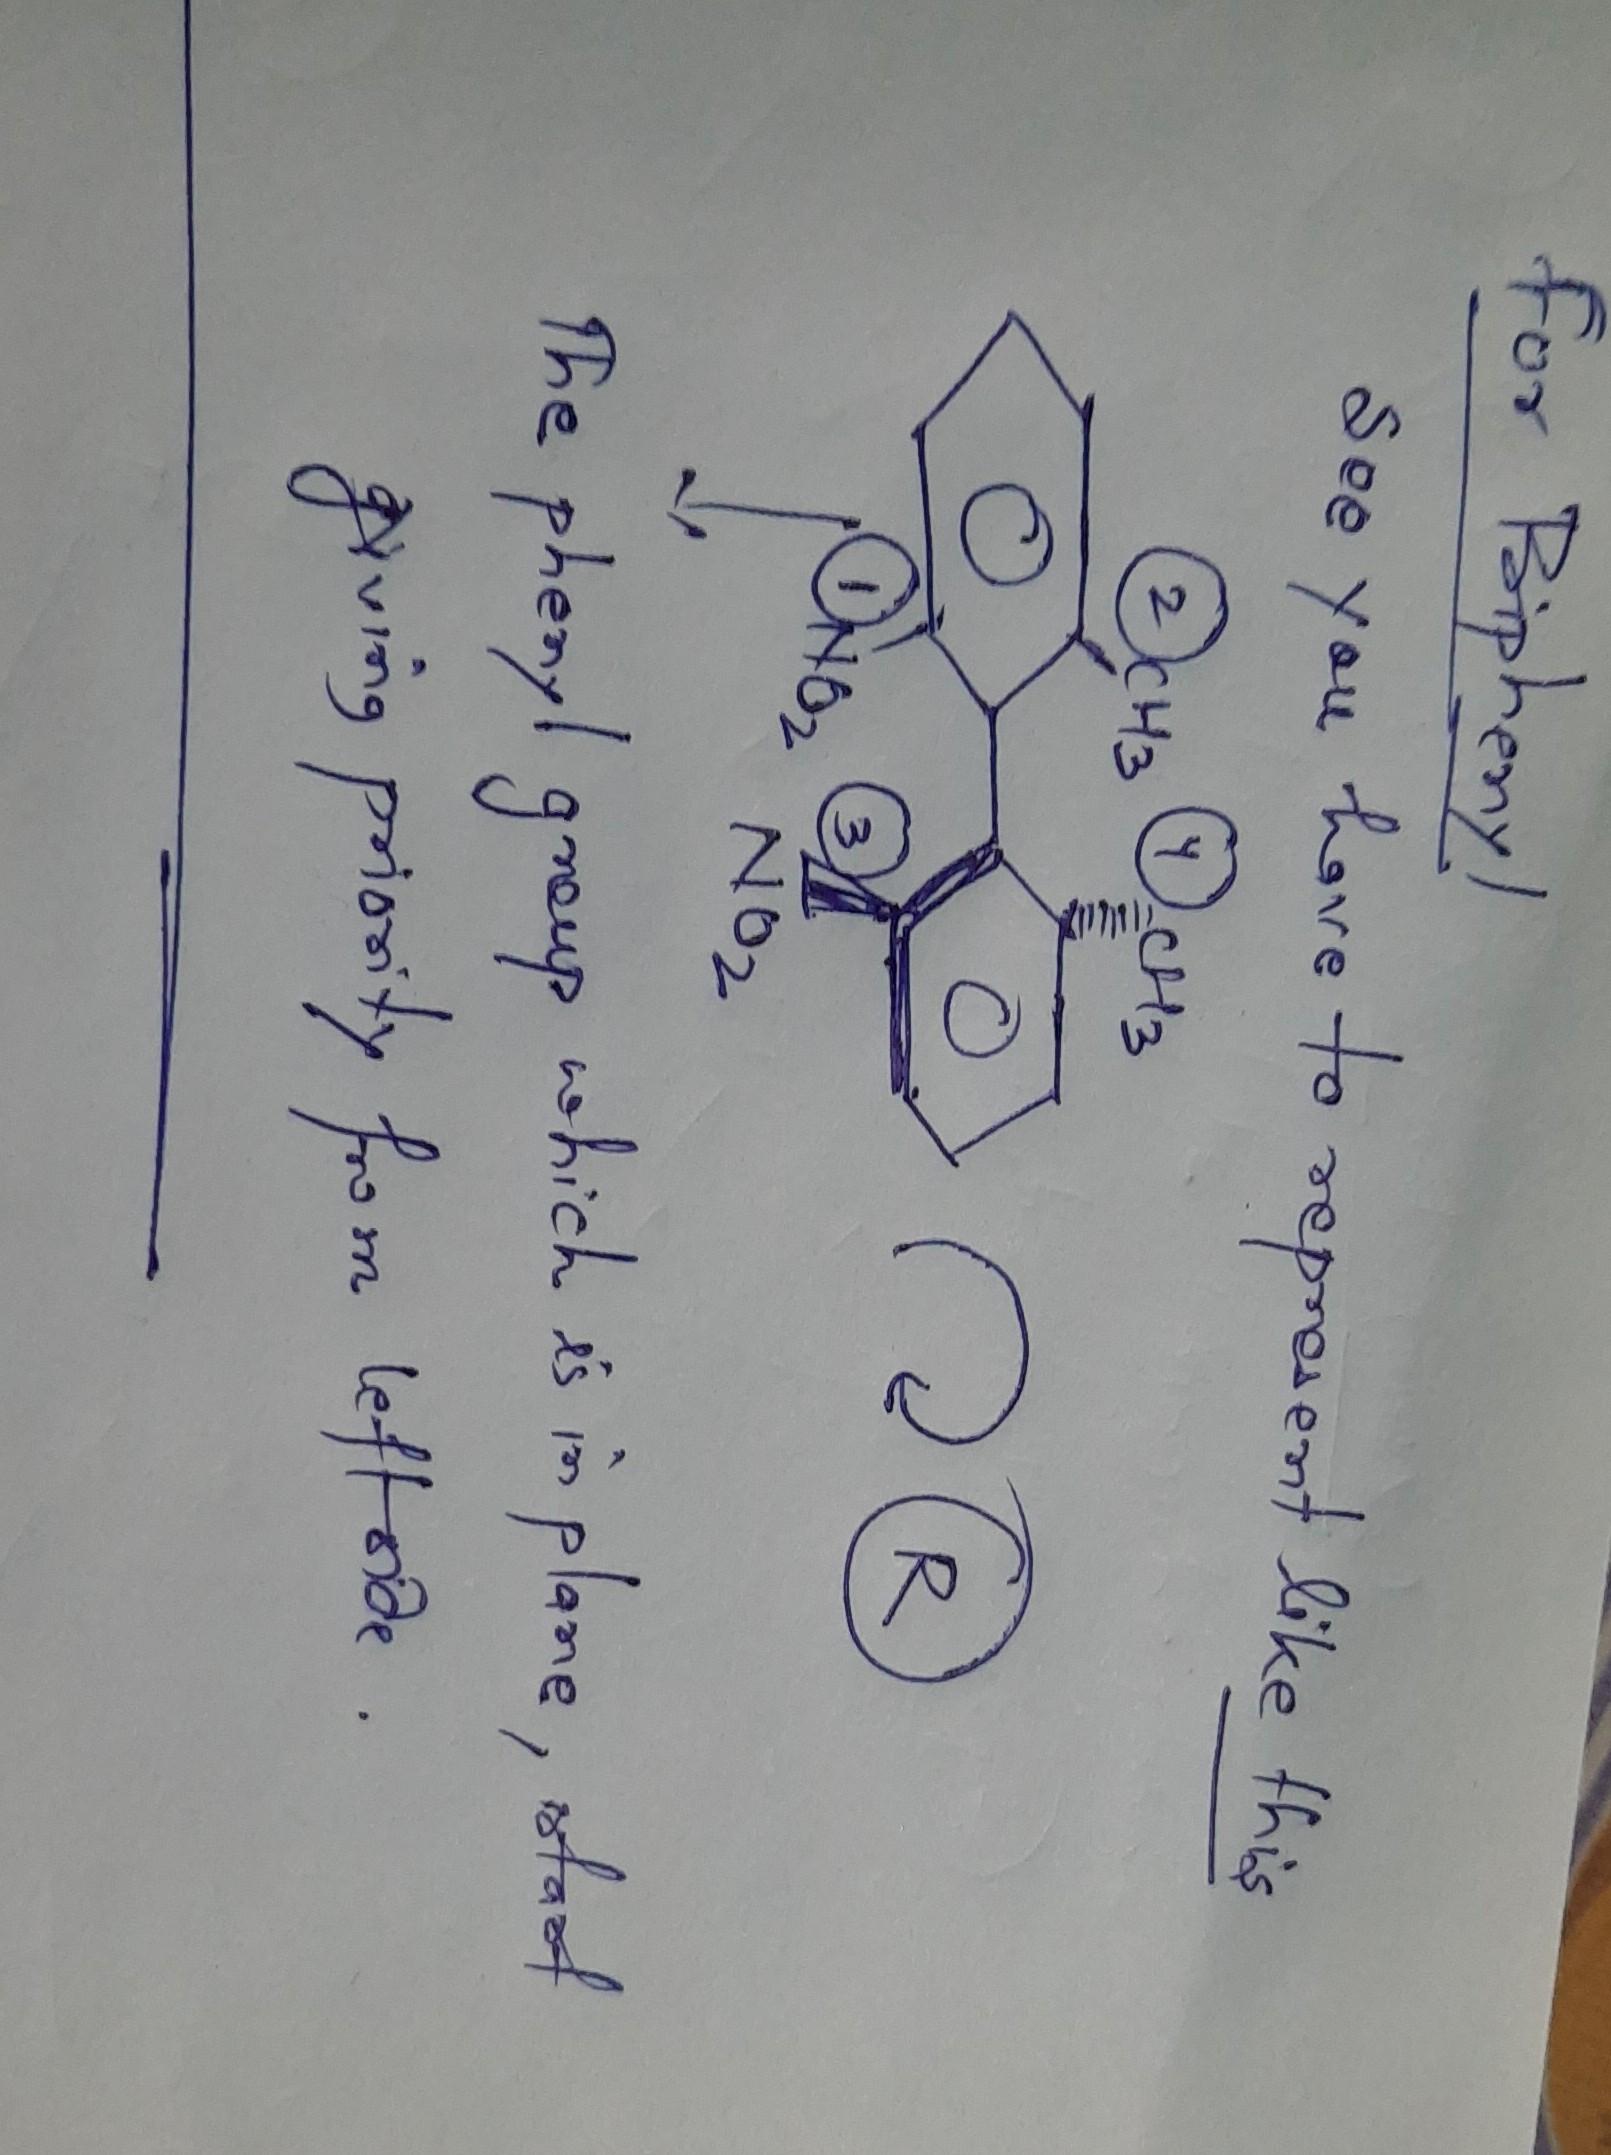 For Biphenyl
See you have to reprasent like this
② CH3 ④ CH3
① NO2 ③ NO2
R
The phenyl group which is in plane, start
giving priority from left side.